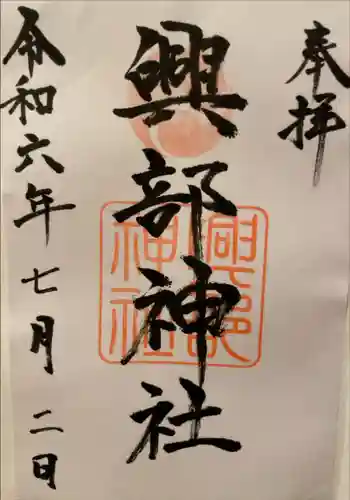 奉拝
興部神社
興部
神社
令和六年七月二日